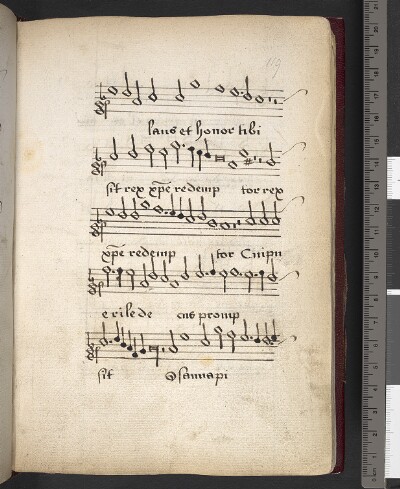 laus et honor tibi
sit rex xp̄e redemp tor rex
xp̄e redemp tor Cuipu
erile de cus promp
sit Osannapi